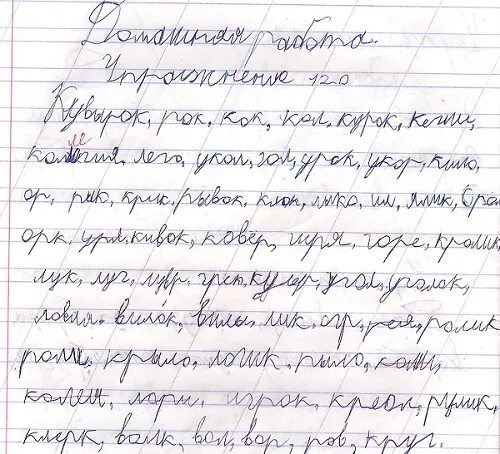 Домашняя работа.
Упражнение 120
Кувырок, рок, кок, кол, курок, кегли,
коллегия, лего, укол, гол, урок, укор, кило,
ор, рык, крик, рывок, клок, лыко, ил, ялик,
орк, кивок, ковёр, гиря, горе, кролик,
лук, луг, лувр, грек, кулер, угол, уголок,
ловля, вилок, вилы, лик, рея, ролик
роли, крыло, логик, рыло,
игрок, креол, рулик,
клерк, волк, вол, вор, ров, круг.